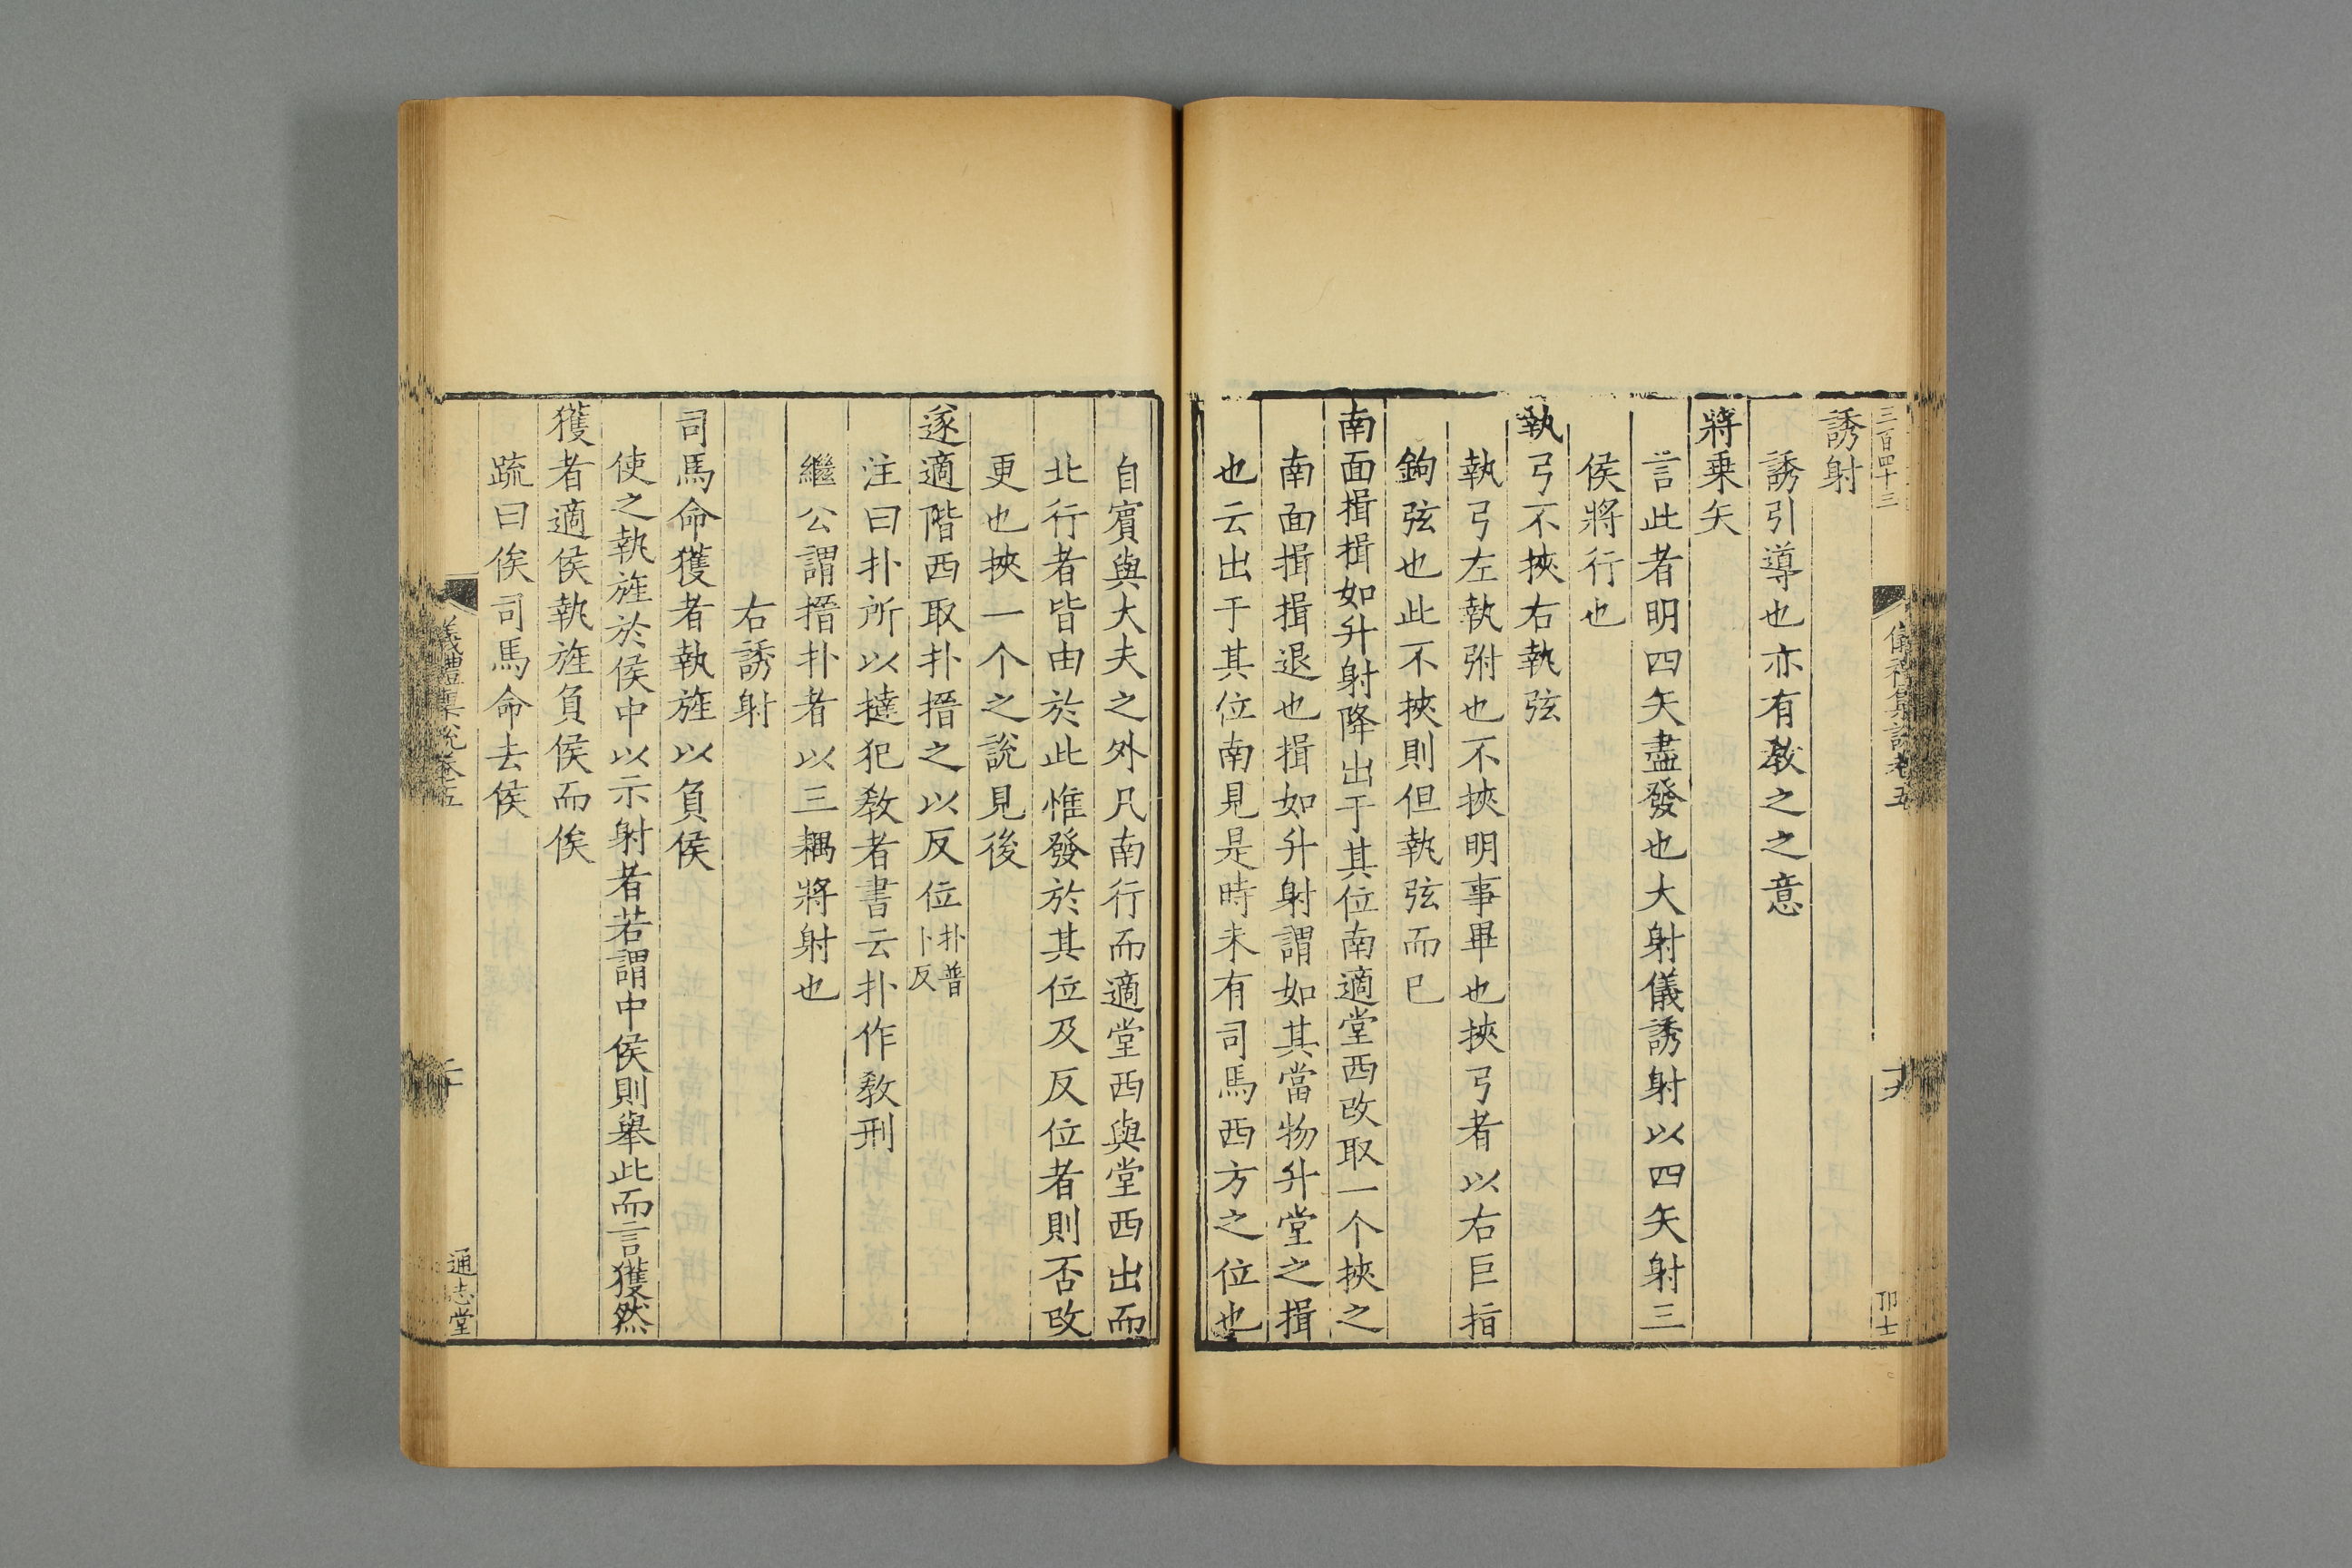 三百四十三
儀禮集說卷五
卯士
誘射
誘引導也亦有教之之意
將乗矢
言此者明四矢盡發也大射儀誘射以四矢射三
侯將行也
執弓不挾右執弦
執弓左執弣也不挾明事畢也挾弓者以右巨指
鉤弦也此不挾則但執弦而已
南面揖揖如升射降出于其位南適堂西改取一个挾之
南面揖揖退也揖如升射謂如其當物升堂之揖
也云出于其位南見是時未有司馬西方之位也
自賓與大夫之外凡南行而適堂西與堂西出而
北行者皆由於此惟發於其位及反位者則否改
更也挾一个之說見後
遂適階西取扑搢之以反位扑普
卜反
注曰扑所以撻犯教者書云扑作教刑
繼公謂搢扑者以三耦將射也
右誘射
司馬命獲者執旌以負侯
使之執旌於侯中以示射者若謂中侯則舉此而言獲然
獲者適侯執旌負侯而俟
疏曰俟司馬命去侯
儀禮集說卷五
二十
通志堂